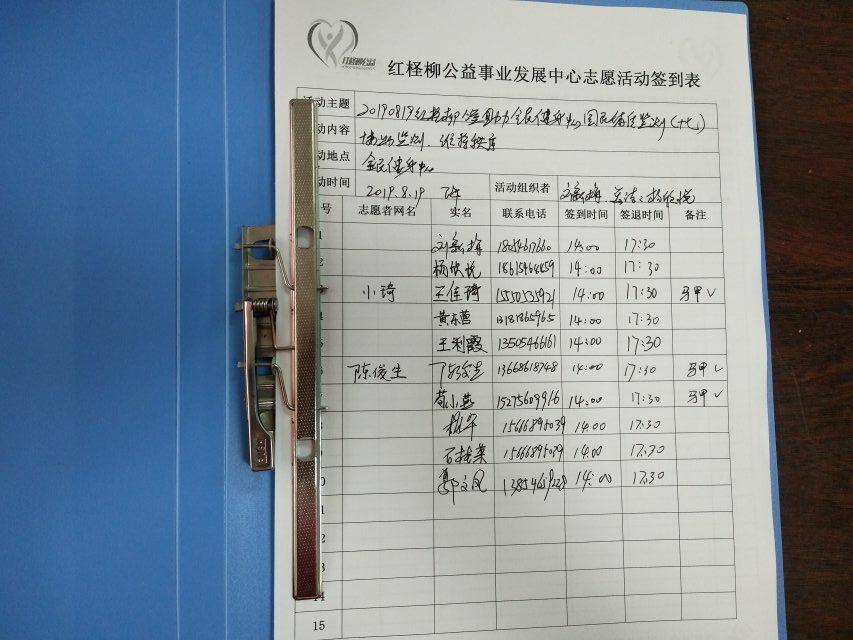 红柽柳公益
红柽柳公益事业发展中心志愿活动签到表
动主题 20190819红柽柳公益助力全民健身中心国民体质监测(十七)
动内容 协助监测、维持秩序
动地点 全民健身中心
动时间 2019.8.19 下午 活动组织者
号 志愿者网名 实名 联系电话 签到时间 签退时间 备注
1 18054617660 14:00 17:30
2 杨欣悦 18615464459 14:00 17:30
小琦 王佳琦 15505235921 14:00 17:30 马甲✓
黄东营 13181865965 14:00 17:30
王利霞 13505466161 14:00 17:30
陈俊生 陈俊生 13668618748 14:00 17:30 马甲✓
荀小燕 15275609916 14:00 17:30 马甲✓
8 15666895039 14:00 17:30
9 石桂荣 15666895039 14:00 17:30
0 郭文凤 14:00 17:30
1
2
3
14
15